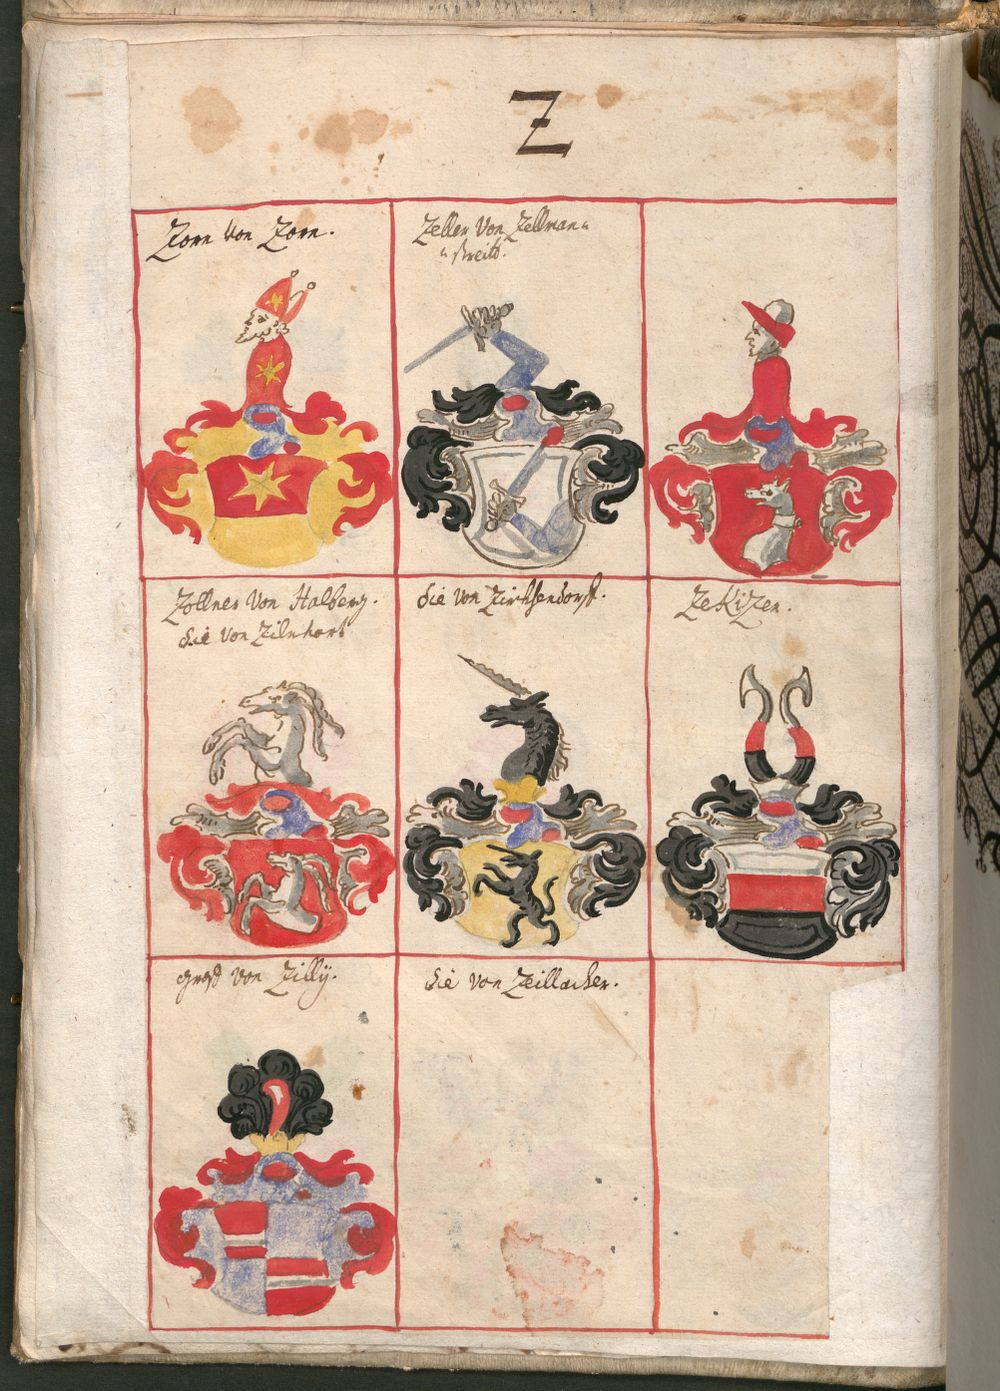 Z
Zorn von Zorn.
Zeller von Zellman„
„ streitt.
Zollner von Halberg.
die von Zilnhart
die von Zirchsendorf.
ZeKiZen.
Graff von Zillÿ.
die von Zeillacker.